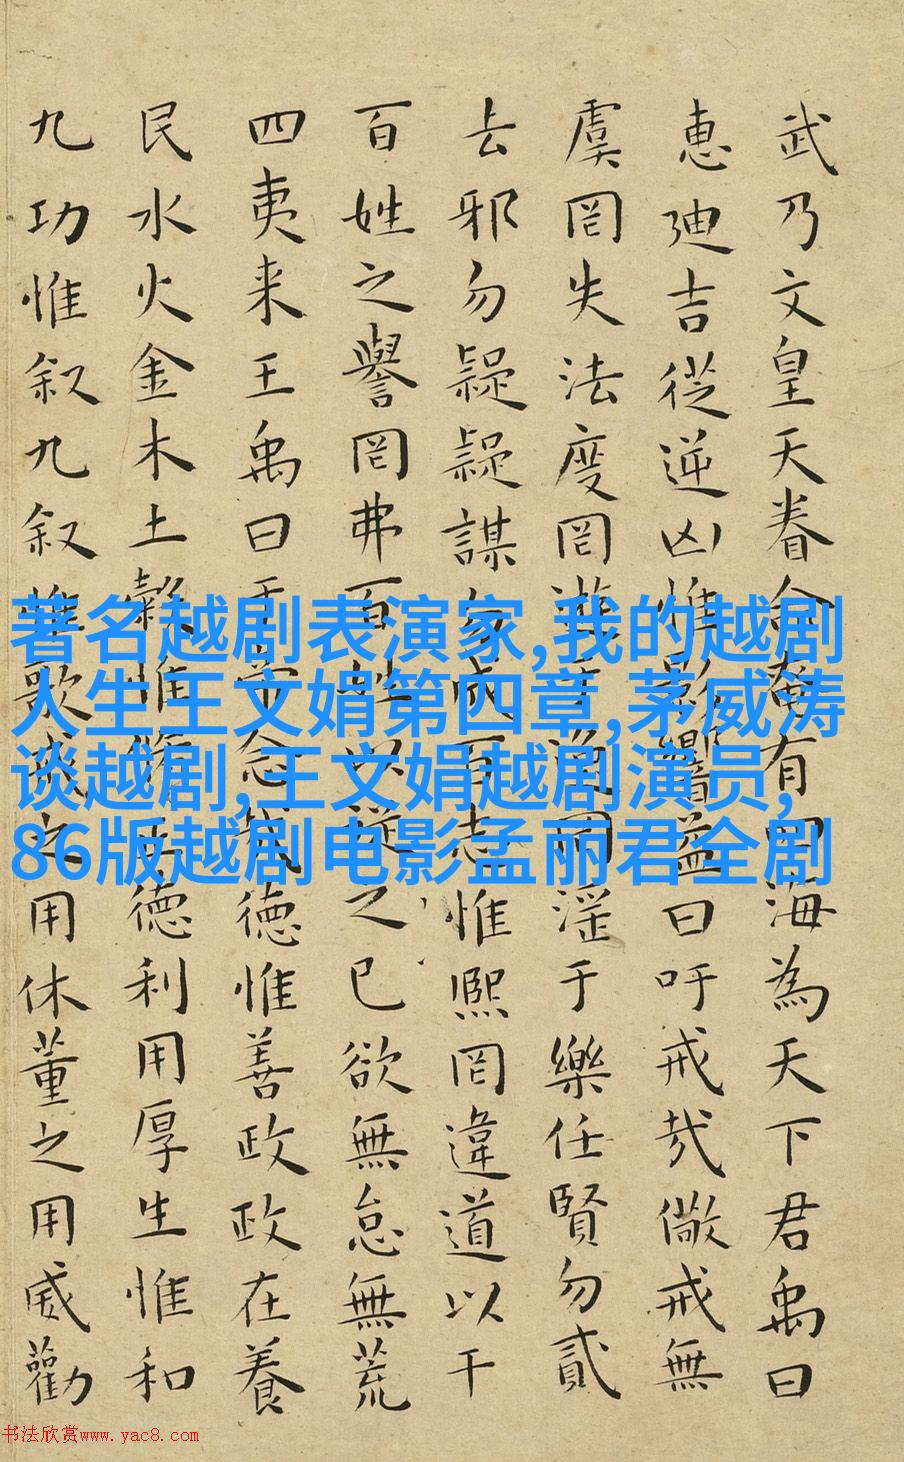 武乃文皇天眷命奄有四海為天下君禹曰
惠迪吉從逆凶惟影響益曰吁戒哉儆戒無
虞罔失法度罔遊于逸罔淫于樂任賢勿貳
去邪勿疑疑謀勿成百志惟熙罔違道以干
百姓之譽罔弗百姓以從之已欲無怠無荒
四夷来王禹曰于帝念哉德惟善政政在養
民水火金木土穀惟修正德利用厚生惟和
九功惟叙九叙惟歌戒之用休董之用威勸
著名越剧表演家,我的越剧
人生王文娟第四章,茅威涛
谈越剧,王文娟越剧演员,
86版越剧电影孟丽君全剧
书法欣赏www.yac8.com